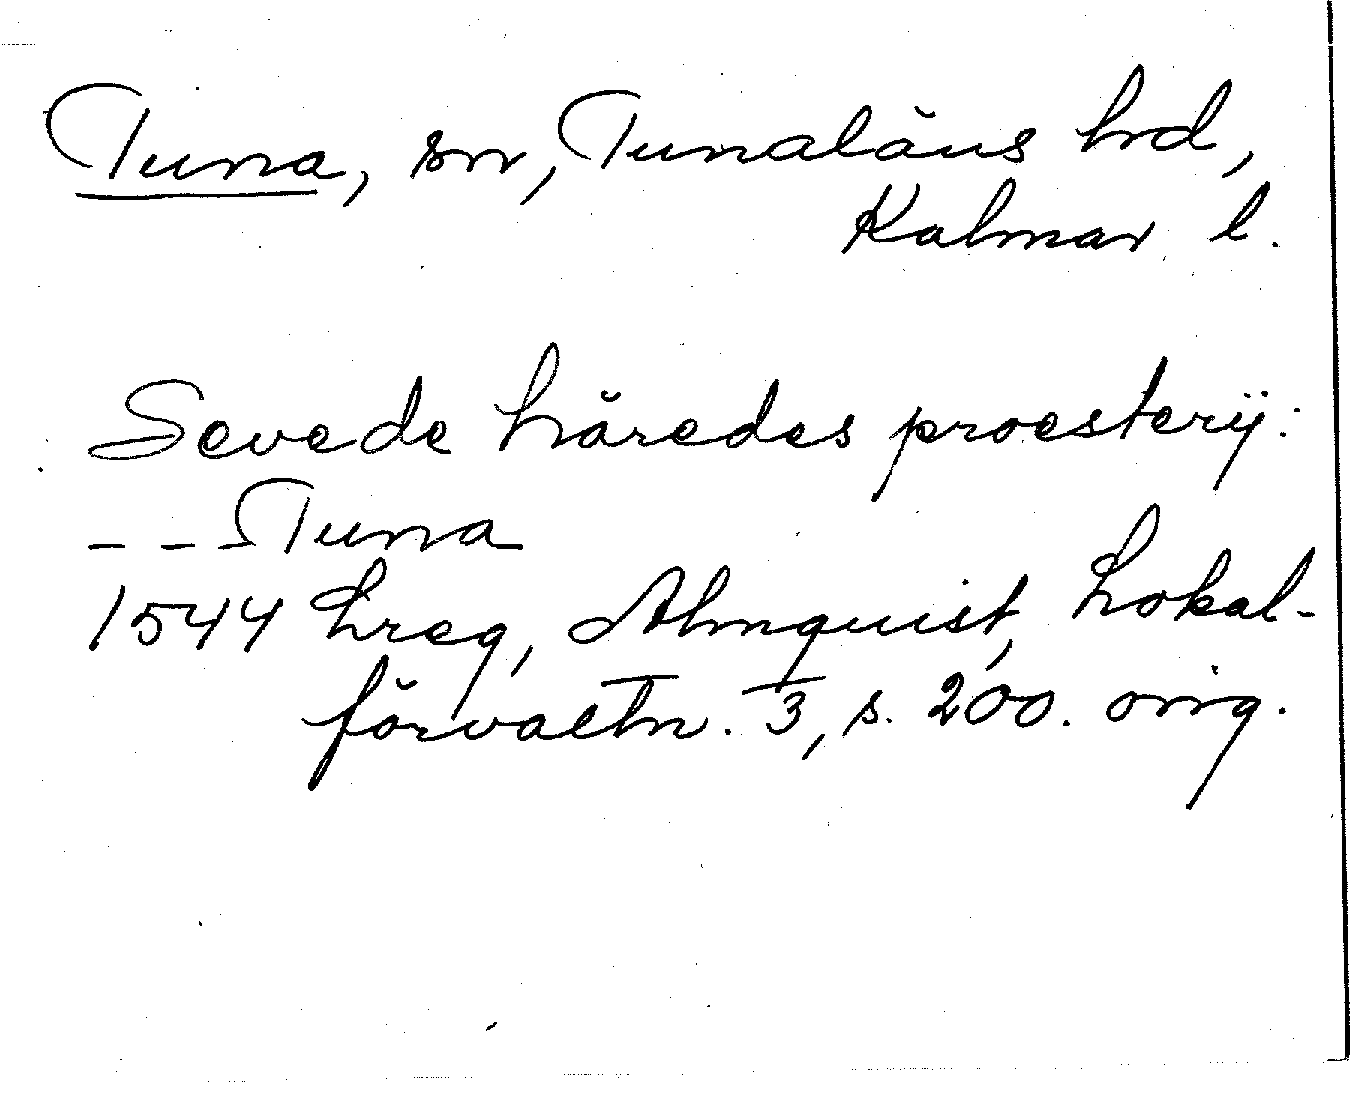 Tuna, sn, Tunaläns hd,
Kalmar l.
Sevede häredes proesterij:
- - - Tuna
1544 hreg, Almquist, Lokal-
förvaltn. 3, s. 200. orig.